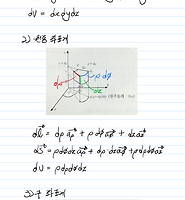 dv = dxdydz
2) 원통 좌표계
dρ
ρdφ
dz
dl = dρ aρ + ρdφ aφ + dz az
ds = ρdφdz aρ + dρ dz aφ + ρdρdφ az
dv = ρdρdφdz
3) 구 좌표계